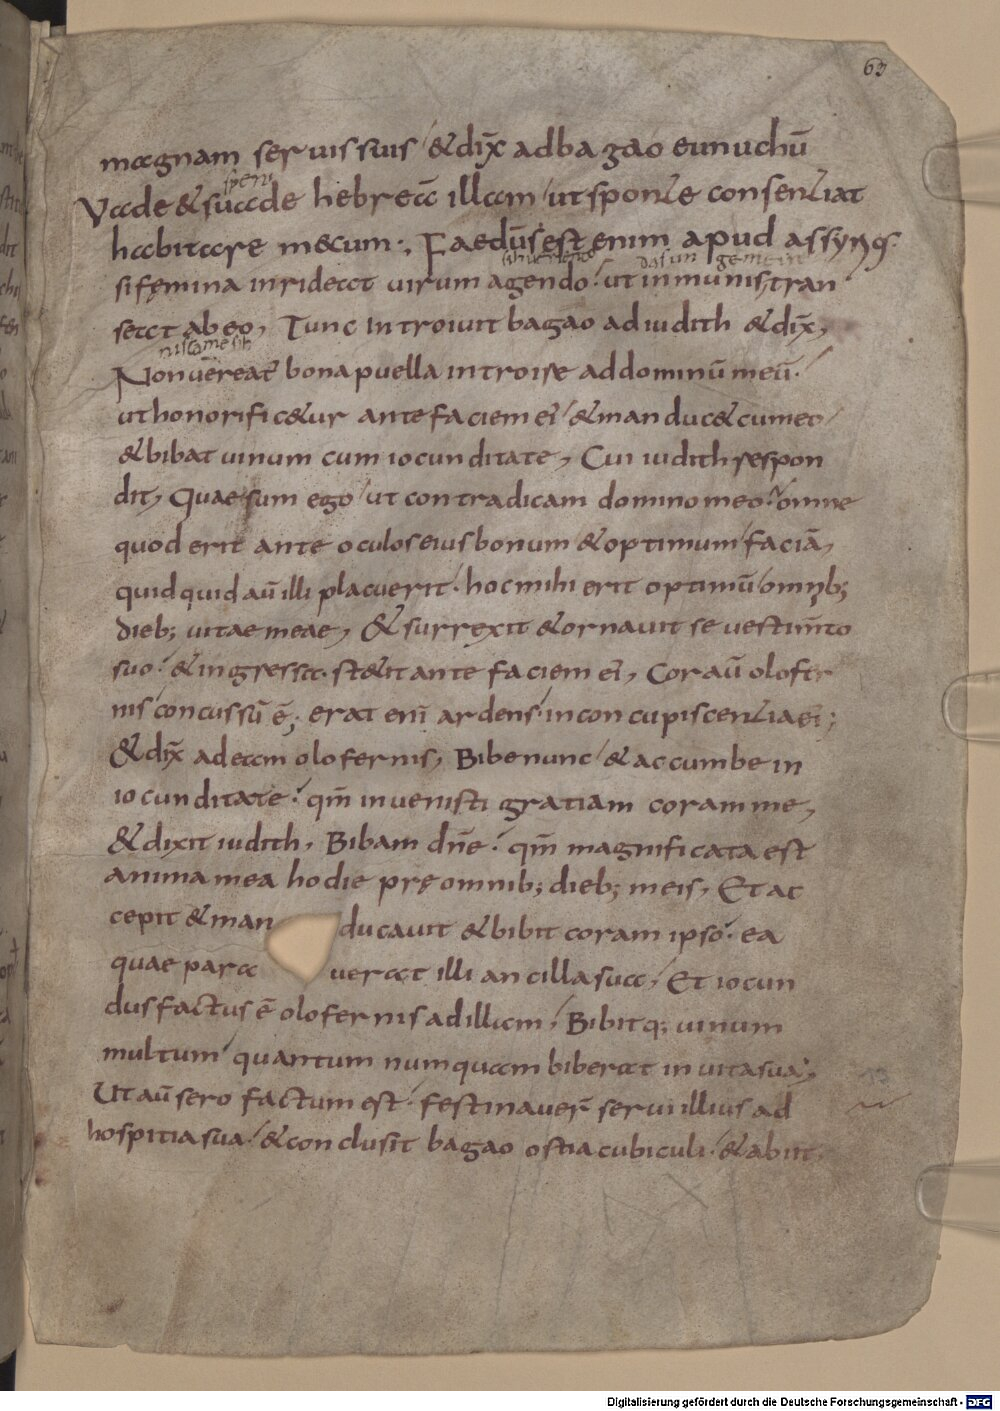 63
magnam servis suis / & dix̄ ad bagao eunuchū
speni
Vade & suade hebreā illam / ut sponte consentiat
habitare mecum ·, Faedū est enim apud assyrios·
sihuemendo dasun gemeit
si fęmina inrideat virum agendo · ut inmunis tran
seat ab eo, Tunc introivit bagao ad iudith & dix̄,
niscamesih
Non vereat bona puella introire ad dominū meū·
ut honorific&ur ante faciem eī / & manduc& cum eo /
& bibat vinum cum iocunditate, Cui iudith respon
dit, Quae sum ego / ut contradicam domino meo · omne
quod erit ante oculos eius bonum & optimum / faciā,
quidquid aū illi placuerit · hoc mihi erit optimū / omnib;
dieb; vitae meae, & surrexit & ornavit se vestim̄to
suo · & ingressa · st&it ante faciem eī, Cor aū olofer
nis concussū ē; erat enī ardens / in concupiscentia ei;
& dix̄ ad eam olofernis, Bibe nunc / & accumbe in
iocunditate · qm̄ invenisti gratiam coram me,
& dixit iudith, Bibam dn̄e · qm̄ magnificata est
anima mea hodie prę omnib; dieb; meis, Et ac
cepit & man ducavit & bibit coram ipso · ea
quae para verat illi ancilla sua / Et iocun
dus factus ē olofernis ad illam / Bibitq; vinum
multum / quantum numquam biberat in vita sua;
Ut aū sero factum est · festinaver̄ servi illius ad
hospitia sua / & conclusit bagao ostia cubiculi · & abiit
Digitalisierung gefördert durch die Deutsche Forschungsgemeinschaft - DFG